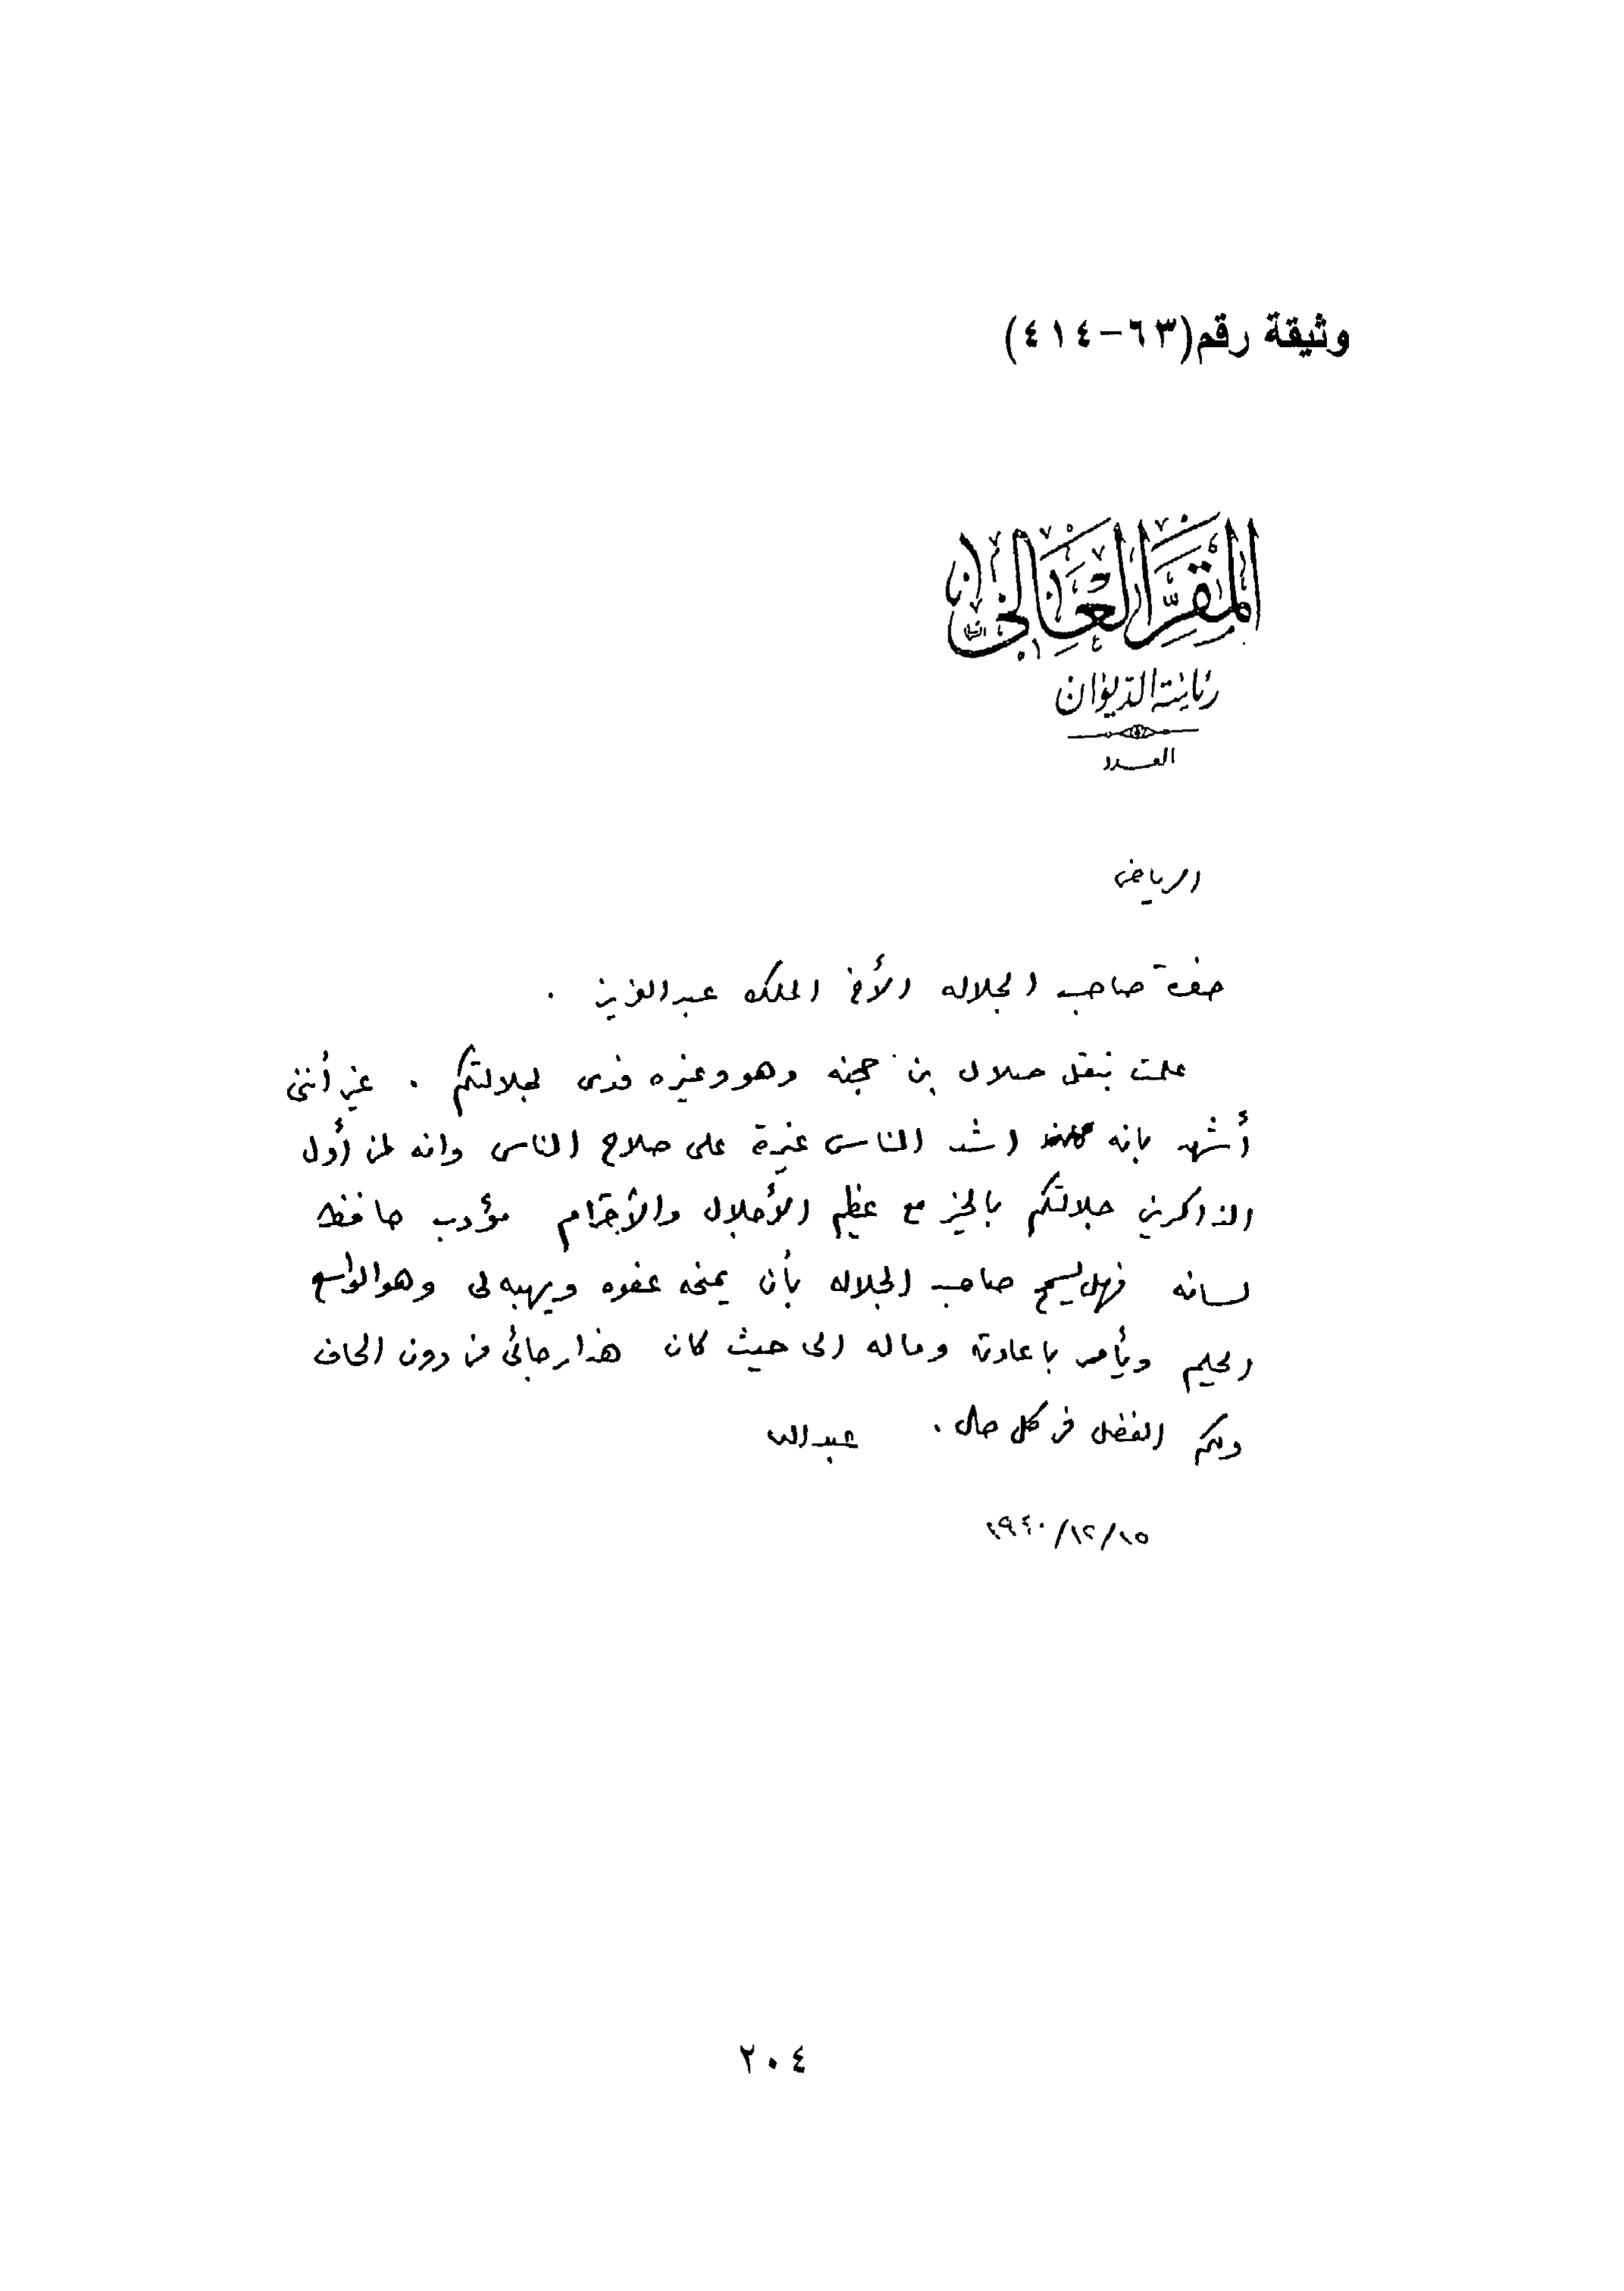 وثيقة رقم(٦٣-٤١٤)
المقر العالي
رئاسة الديوان
العدد
الرياض
حضرة صاحب الجلاله الأخ الملك عبدالعزيز .
علمت بنقل صلال بن حجنه وهو وغيره فدى لجلالتكم . غير أننى
أشهد بانه اشد الناس غيرة على صلاح الناس وانه لمن أول
الذاكرين جلالتكم بالخير مع عظيم الأجلال والأحترام مؤدب حافظ
لسانه فهل يسمح صاحب الجلاله بأن يمنحه عفوه ويهبه لى وهو الواسع
الحليم ويأمر باعادته وماله الى حيث كان هذا رجائى من دون الحاف
ولكم الفضل فى كل حال . عبدالله
١٥/١٢/١٩٤٠
٢٠٤